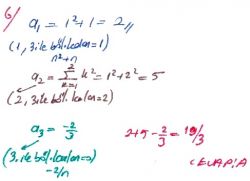 6)
a₁ = 1² + 1 = 2,,
(1, 3 ile böl. kalan = 1)
n² + n
a₂ = 2∑k=1 k² = 1² + 2² = 5
(2, 3 ile böl. kalan = 2)
a₃ = -2/3
(3 ile böl. kalan = 0)
-2/n
2 + 5 - 2/3 = 19/3
CEVAP A